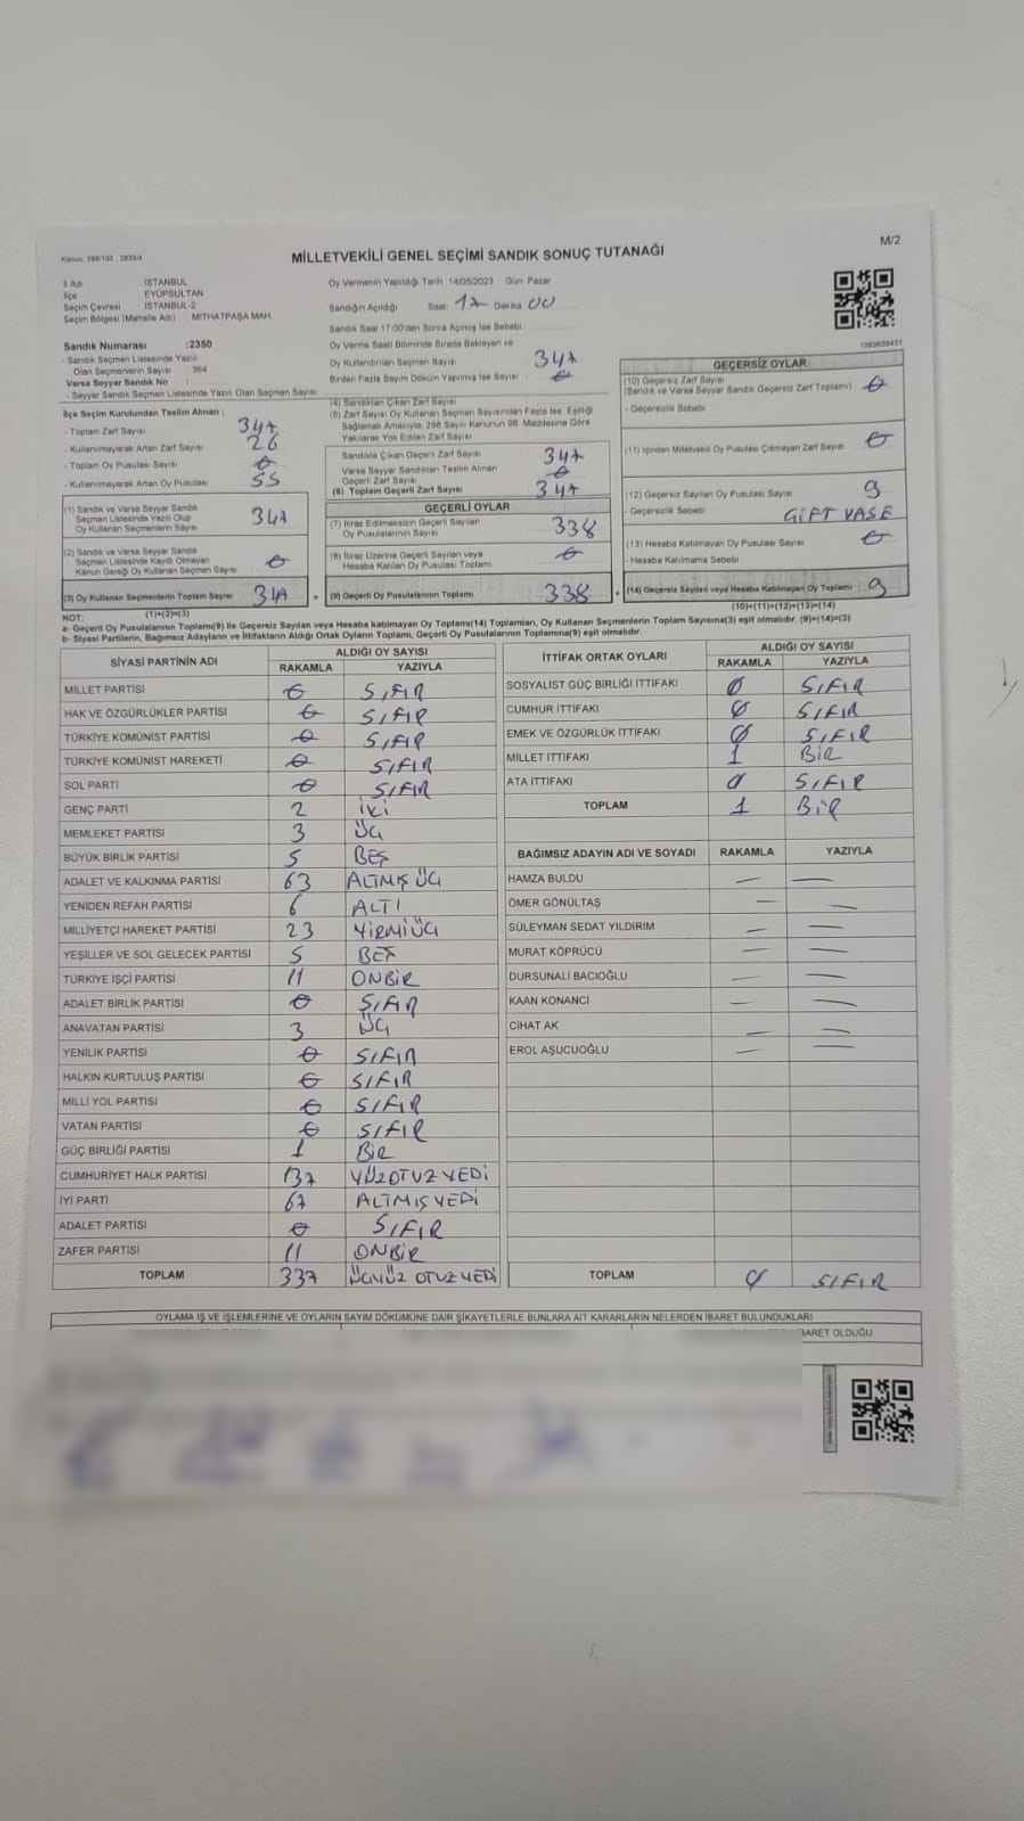 M/2
MİLLETVEKİLİ GENEL SEÇİMİ SANDIK SONUÇ TUTANAĞI
İli Adı : İSTANBUL
İlçe : EYÜPSULTAN
Seçim Çevresi : İSTANBUL-2
Seçim Bölgesi (Mahalle Adı) : MİTHATPAŞA MAH.
Oy Vermenin Yapıldığı Tarih : 14/05/2023 Gün: Pazar
Sandığın Açıldığı Saat: 17 Dakika 00
Sandık Saat 17:00'den Sonra Açılmış İse Sebebi
Sandık Numarası :2350
- Sandık Seçmen Listesinde Yazılı
Olan Seçmenlerin Sayısı 364
Varsa Seyyar Sandık No :
- Seyyar Sandık Seçmen Listesinde Yazılı Olan Seçmen Sayısı
Oy Verme Saati Bitiminde Sırada Bekleyen ve
Oy Kullandırılan Seçmen Sayısı 347
Birden Fazla Sayım Döküm Yapılmış İse Sayısı 0
İlçe Seçim Kurulundan Teslim Alınan :
- Toplam Zarf Sayısı 347
- Kullanılmayarak Artan Zarf Sayısı 26
- Toplam Oy Pusulası Sayısı 0
- Kullanılmayarak Artan Oy Pusulası 55
(1) Sandık ve Varsa Seyyar Sandık
Seçmen Listesinde Yazılı Olup
Oy Kullanan Seçmenlerin Sayısı 347
(2) Sandık ve Varsa Seyyar Sandık
Seçmen Listesinde Kayıtlı Olmayan
Kanun Gereği Oy Kullanan Seçmen Sayısı 0
(3) Oy Kullanan Seçmenlerin Toplam Sayısı 347
(1)+(2)=(3)
(4) Sandıktan Çıkan Zarf Sayısı
(5) Zarf Sayısı Oy Kullanan Seçmen Sayısından Fazla İse, Eşitliği
Sağlamak Amacıyla, 298 Sayılı Kanunun 98. Maddesine Göre
Yakılarak Yok Edilen Zarf Sayısı
Sandıkta Çıkan Geçerli Zarf Sayısı 347
Varsa Seyyar Sandıktan Teslim Alınan
Geçerli Zarf Sayısı 0
(6) Toplam Geçerli Zarf Sayısı 347
GEÇERLİ OYLAR
(7) İtiraz Edilmeksizin Geçerli Sayılan
Oy Pusulalarının Sayısı 338
(8) İtiraz Üzerine Geçerli Sayılan veya
Hesaba Katılan Oy Pusulası Toplamı 0
(9) Geçerli Oy Pusulalarının Toplamı 338
GEÇERSİZ OYLAR
(10) Geçersiz Zarf Sayısı
(Sandık ve Varsa Seyyar Sandık Geçersiz Zarf Toplamı) 0
- Geçersizlik Sebebi
(11) İçinden Milletvekili Oy Pusulası Çıkmayan Zarf Sayısı 0
(12) Geçersiz Sayılan Oy Pusulası Sayısı 9
- Geçersizlik Sebebi GİFT VASE
(13) Hesaba Katılmayan Oy Pusulası Sayısı 0
- Hesaba Katılmama Sebebi
(14) Geçersiz Sayılan veya Hesaba Katılmayan Oy Toplamı 9
(10)+(11)+(12)+(13)=(14)
NOT:
a- Geçerli Oy Pusulalarının Toplamı(9) ile Geçersiz Sayılan veya Hesaba katılmayan Oy Toplamı(14) Toplamları, Oy Kullanan Seçmenlerin Toplam Sayısına(3) eşit olmalıdır. (9)+(14)=(3)
b- Siyasi Partilerin, Bağımsız Adayların ve İttifakların Aldığı Ortak Oyların Toplamı, Geçerli Oy Pusulalarının Toplamına(9) eşit olmalıdır.
SİYASİ PARTİNİN ADI
ALDIĞI OY SAYISI
RAKAMLA YAZIYLA
MİLLET PARTİSİ 0 SIFIR
HAK VE ÖZGÜRLÜKLER PARTİSİ 0 SIFIR
TÜRKİYE KOMÜNİST PARTİSİ 0 SIFIR
TÜRKİYE KOMÜNİST HAREKETİ 0 SIFIR
SOL PARTİ 0 SIFIR
GENÇ PARTİ 2 İKİ
MEMLEKET PARTİSİ 3 ÜÇ
BÜYÜK BİRLİK PARTİSİ 5 BEŞ
ADALET VE KALKINMA PARTİSİ 63 ALTMIŞ ÜÇ
YENİDEN REFAH PARTİSİ 6 ALTI
MİLLİYETÇİ HAREKET PARTİSİ 23 YİRMİÜÇ
YEŞİLLER VE SOL GELECEK PARTİSİ 5 BEŞ
TÜRKİYE İŞÇİ PARTİSİ 11 ONBİR
ADALET BİRLİK PARTİSİ 0 SIFIR
ANAVATAN PARTİSİ 3 ÜÇ
YENİLİK PARTİSİ 0 SIFIR
HALKIN KURTULUŞ PARTİSİ 0 SIFIR
MİLLİ YOL PARTİSİ 0 SIFIR
VATAN PARTİSİ 0 SIFIR
GÜÇ BİRLİĞİ PARTİSİ 1 BİR
CUMHURİYET HALK PARTİSİ 137 YÜZOTUZYEDİ
İYİ PARTİ 67 ALTMIŞYEDİ
ADALET PARTİSİ 0 SIFIR
ZAFER PARTİSİ 11 ONBİR
TOPLAM 337 ÜÇYÜZ OTUZYEDİ
İTTİFAK ORTAK OYLARI
ALDIĞI OY SAYISI
RAKAMLA YAZIYLA
SOSYALİST GÜÇ BİRLİĞİ İTTİFAKI 0 SIFIR
CUMHUR İTTİFAKI 0 SIFIR
EMEK VE ÖZGÜRLÜK İTTİFAKI 0 SIFIR
MİLLET İTTİFAKI 1 BİR
ATA İTTİFAKI 0 SIFIR
TOPLAM 1 BİR
BAĞIMSIZ ADAYIN ADI VE SOYADI RAKAMLA YAZIYLA
HAMZA BULDU — —
ÖMER GÖNÜLTAŞ — —
SÜLEYMAN SEDAT YILDIRIM — —
MURAT KÖPRÜCÜ — —
DURSUNALİ BACIOĞLU — —
KAAN KONANCI — —
CİHAT AK — —
EROL AŞUCUOĞLU — —
TOPLAM 0 SIFIR
OYLAMA İŞ VE İŞLEMLERİNE VE OYLARIN SAYIM DÖKÜMÜNE DAİR ŞİKAYETLERLE BUNLARA AİT KARARLARIN NELERDEN İBARET BULUNDUKLARI
İBARET OLDUĞU